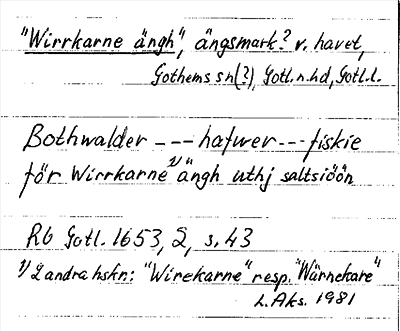 "Wirrkarne ängh", ängsmark? v. havet,
Gothems sn(?), Gotl. n. hd, Gotl. l.
Bothwalder --- hafwer --- fiskie
för Wirrkarne 1) ängh uthj saltsiöön
Rb Gotl. 1653, 2, s. 43
1) 2 andra hskr: "Wirekarne" resp. "Wärnekare"
L. Aks. 1981